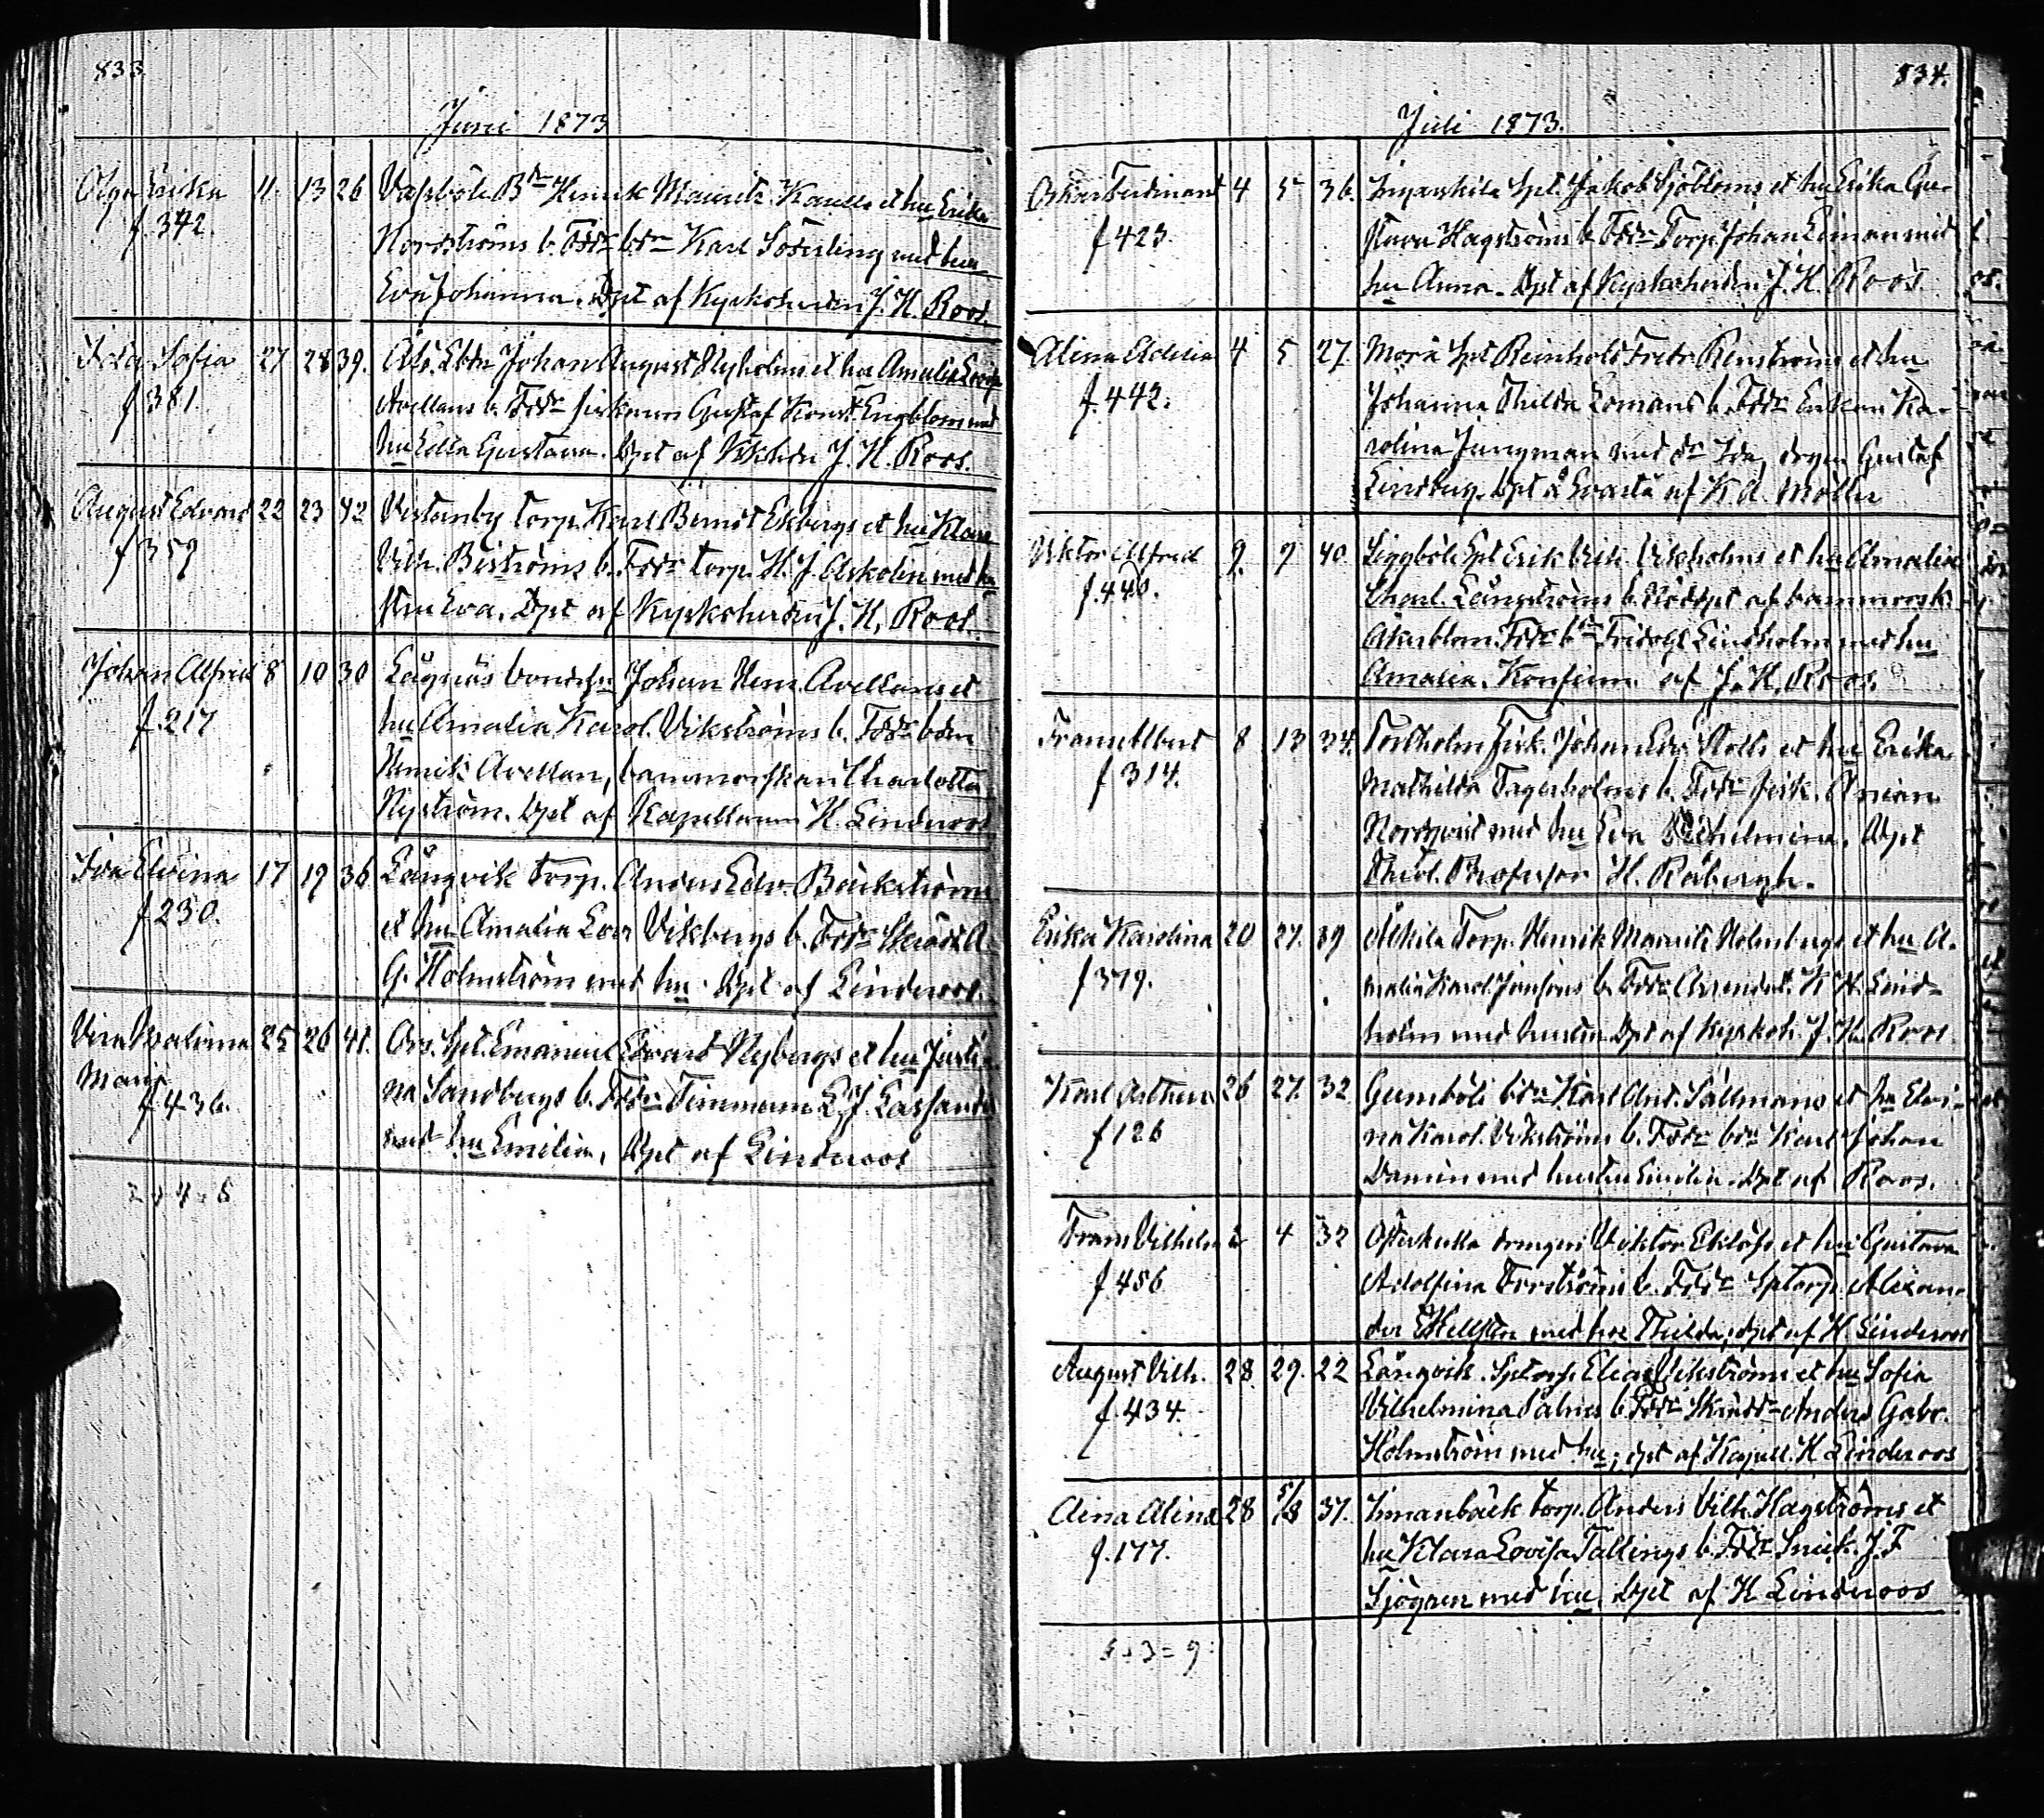 833
Juni 1873
Olga Erika 11. 13 26 Vassböle Bdn Henrik Maurits Karells et hu Erika
f. 342. Nordströms b. Fddr bdn Karl Söderling med hu
Eva Johanna. Dpt af Kyrkoherden J. H. Roos.
Ida Sofia 27 28 39. Johan August Nyholms et hu Amalia
f 381 Avellans b. Fddr fiskaren Gustaf Engblom med
hu Edla Gustava. Dpt af J. H. Roos.
August Edvard 22 23 42 Vestanby torp. Karl Bernd. Ekbergs et hu Klara
f 359 Vilh. Biströms b. Fddr torp. H. J. Askolin med hu
stru Eva. Dpt af Kyrkoherden J. H. Roos.
Johan Alfred 8 10 30 Lågnäs Johan Henr. Avellans et
f. 217 hu Amalia Karol. Vikströms b. Fddr bdn
Henrik Avellan, barnmorskan Charlotta
Nyström. Dpt af Kapellanen H. Linderoos
Ida Elvina 17 19 36 Långvik Torp. Anders Edv. Bäckströms
f 230. et hu Amalia Lov. Vikbergs b. Fddr A.
G. Holmström med hu. Dpt af Linderoos.
25 26 41. Emanuel Edvard Nybergs et hu Justi-
Maria na Sandbergs b. Fddr Timmerm.
f 436. med hu Emilia, Dpt af Linderoos
2 + 4 = 6
834.
Juli 1873.
Oskar Ferdinant 4 5 36. Ingarskila Spt. Jakob Sjöbloms et hu Erika Gu-
f 423. stava Hagströms b. Fddr Torp. Johan med
hu Anna. Dpt af Kyrkoherden J. H. Roos.
Alina Adelia 4 5 27. Morä Spt Reinhold Fredr. Renströms et hu
f. 442. Johanna Thilda Lomans b. Fddr Enkan Ka-
rolina Jungman med dr Ida, dryn Gustaf
Lindberg. Dpt å Svartå af K. A. Moller
Viktor Alfred 9. 9 40 Liggböle Spt Erik Vilh. Vikholms et hu Amalia
f. 440. Charl. Långströms b. Nöddpt af barnmorsk.
Åkerblom. Fddr bdn Fridolf Lindholm med hu
Amalia. Konfirm. af J. H. Roos.
Frans Albert 8 13 34. Torbholm Fisk. Johan Edv. et hu Erika
f 314. Mathilda Fagerholms b. Fddr fisk. Adrian
Nordqvist med hu Eva Vilhelmina. Dpt
Theol. Professor H. Råbergh.
Erika Karolina 20 27. 39 Åkila Torp. Henrik Maurits Holmbergs et hu A-
f 379. malia Karol. Jonsons b. Fddr Arrendat. K. H. Lind-
holm med hustru. Dpt af Kyrkoh. J. H. Roos.
Karl Arthur 26 27. 32 Gumböle bdn Karl And. Sallmans et hu Elvi-
f 126 na Karol. Vikströms b. Fddr bdn Karl Johan
med hustru Emilia. Dpt af Roos.
Frans Vilhelm 2 4 32 Österkulla drengen Viktor Eklöfs et hu Gustava
f 456 Adolfina Forströms b. Fddr Sptorp. Alexan-
der med hu Thilda; dpt af H. Linderoos
August Vilh. 28. 29. 22 Långvik. Sptorp. Elias Vikströms et hu Sofia
f. 434. Vilhelmina Palms b. Fddr Anders Gabr.
Holmström med hu; dpt af Kapell. H Linderoos
Aina Alina 28 5/8 37. torp. Anders Vilh. Hagströms et
f. 177. hu Klara Lovisa Tallings b. Fddr Snick. J. F
Sjögren med hu. Dpt af H Linderoos
3 = 9